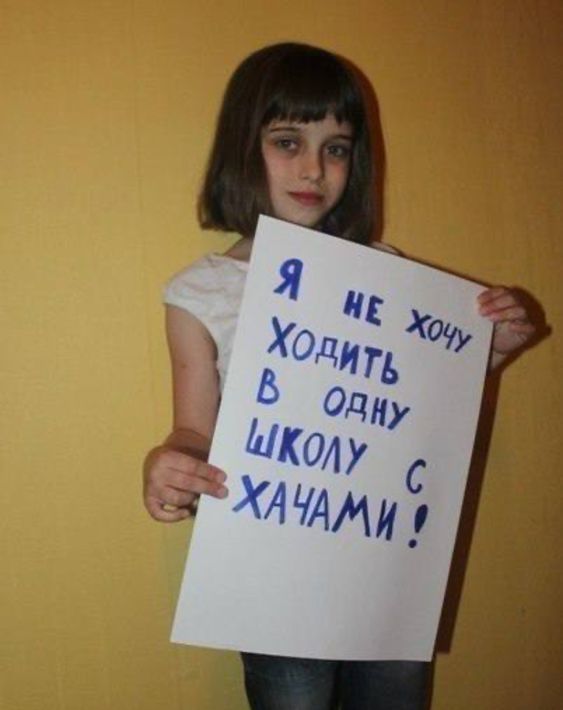 Я НЕ ХОЧУ
ХОДИТЬ
В ОДНУ
ШКОЛУ С
ХАЧАМИ!